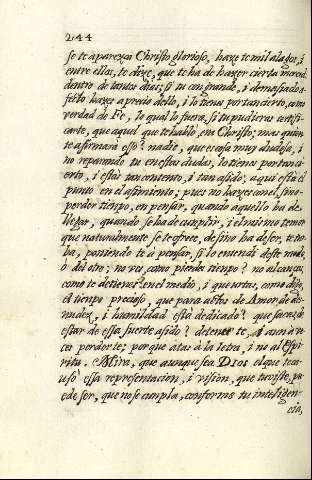 244
se te aparezca Christo glorioso, haze te mil alagos, i
entre ellos, te dize, que te ha de hazer cierta merced,
dentro de tantos dias; si tu con grande, i demasiado a-
fecto hazes aprecio dello, i lo tienes por tan cierto, como
verdad de Fe, lo qual lo fuera, si tu pudieras certifi-
carte, que aquel que te habló, era Christo; mas quien
te afirmará esso? nadie, que es cosa muy dudosa, i
no reparando tu en estas dudas, lo tienes por tan ci-
erto, i estás tan contento, i tan asido; aqui està el
punto en el asimiento; pues no hazes con el, sino
perder tiempo, en pensar, quando aquello ha de
llegar, quando se ha de cumplir, i el mismo temor
que naturalmente se te ofrece, de si no ha de ser, te tur-
ba, poniendo te à pensar, si lo entendi deste modo,
ò del otro; no ves, como pierdes tiempo? no alcanzas,
como te detienes en el medio, i que hurtas, como dixe,
el tiempo precioso, que para actos de Amor, de des-
nudez, i humildad està dedicado? que sacas, de
estar de essa suerte asido? detener te, i aun à ve-
ces perderte; porque atas à la letra, i no al Espi-
ritu. Mira, que aunque sea DIOS el que te cau-
usò essa representacion, i visiòn, que tuviste, pu-
ede ser, que no se cumpla, conforme tu inteligen-
cia,